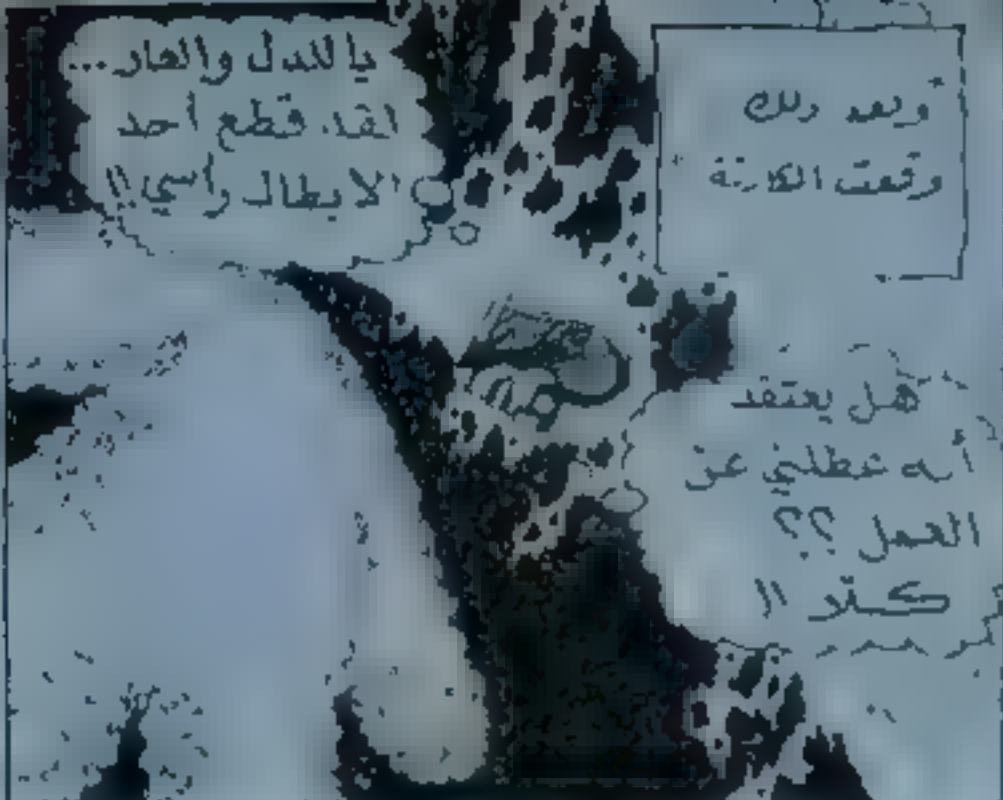 وبعد ذلك
وقعت الكارثة
يا للذل والعار...
لقد قطع أحد
الابطال رأسي!!
هل يعتقد
أنه عطلني عن
العمل ؟؟
كلا !!